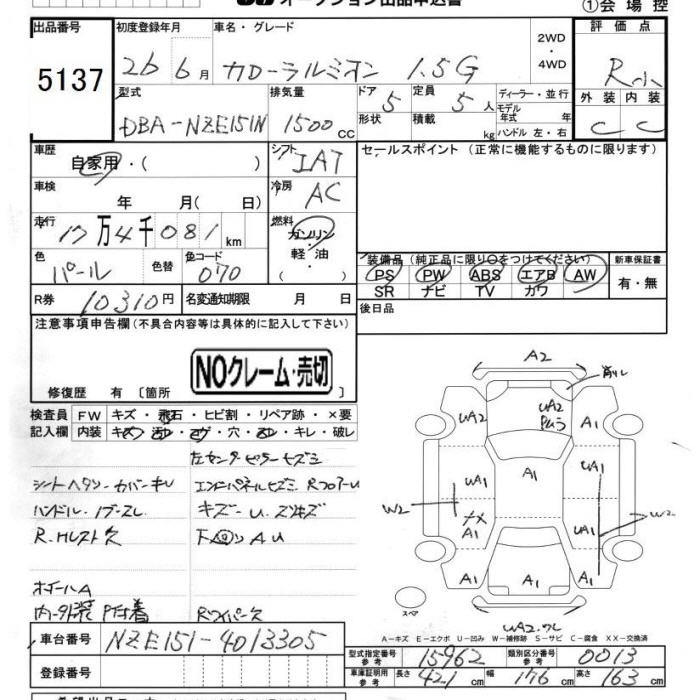 オークション出品申込書
①会場控
出品番号
5137
初度登録年月
26 6月
車名・グレード
カローラルミオン 1.5G
2WD
・
4WD
評価点
R小
外装 内装
C C
型式
DBA-NZE151N
排気量
1500CC
ドア
5
定員
5人
形状
積載
kg
ディーラー・並行
モデル
年式 年
ハンドル 左・右
車歴
自家用・( )
シフト
IAT
セールスポイント (正常に機能するものに限ります)
車検
年 月( 日)
冷房
AC
走行
17万4千081km
燃料
ガソリン
軽油
・( )
色
パール
色替
色コード
070
装備品 (純正品に限り○をつけてください)
PS PW ABS エアB AW
SR ナビ TV カワ
新車保証書
有・無
R券 10310円
名変通知期限 月 日
後日品
注意事項申告欄(不具合内容等は具体的に記入して下さい)
NOクレーム・売切
修復歴 有 〔箇所
検査員
記入欄
FW キズ・飛石・ヒビ割・リペア跡・×要
内装 キズ・汚レ・コゲ・穴・ヌレ・キレ・破レ
左センターピラーキズミ
シートヘタリ・カバーキレ
ハンドル・ノブスレ
R.Hレスト欠
キズ・U.スリキズ
下回リAU
ホイールA
内・外装 P付着
Rワイパー欠
A2
削レ
UA2
UA2
A1
UA1
A1
UA1
W2
W2
メメ
A1
UA1
A1
A1
A1
スペア
UA2.ワレ
A-キズ E-エクボ U-凹み W-補修跡 S-サビ C-腐食 XX-交換済
車台番号 NZE151-4013305
登録番号
型式指定番号
参考
15962
類別区分番号
参考
0013
車庫証明用
参考
長さ 421cm 幅 176cm 高さ 163cm